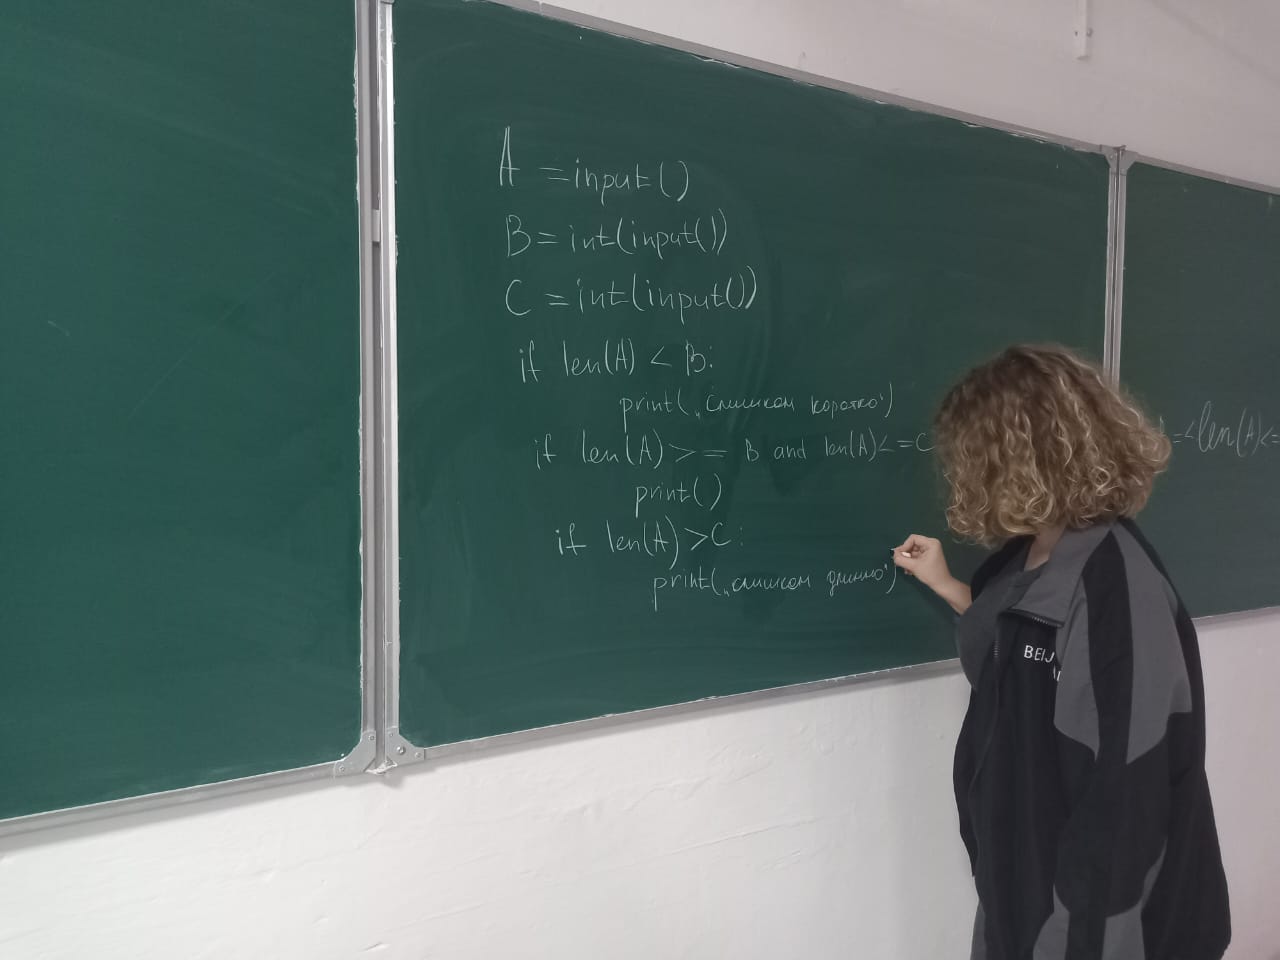 A = input()
B = int(input())
C = int(input())
if len(A) < B:
print(„слишком коротко“)
if len(A) >= B and len(A) <= C
print()
if len(A) > C:
print(„слишком длинно“)
=< len(A) <=
BEIJ